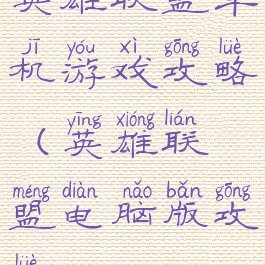 英雄联盟单
jī yóu xì gōng lüè
机游戏攻略
yīng xióng lián
（英雄联
méng diàn nǎo bǎn gōng
盟电脑版攻
lüè